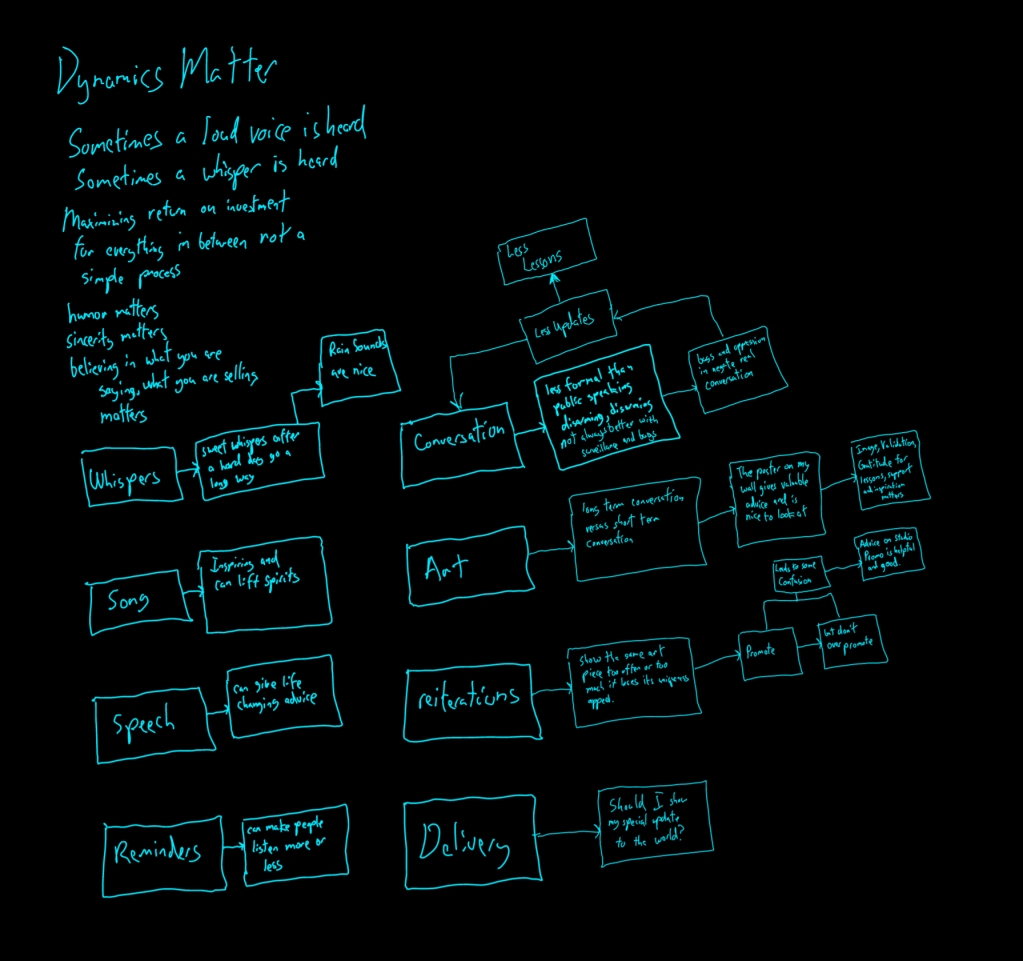 Dynamics Matter
Sometimes a loud voice is heard
Sometimes a whisper is heard
Maximizing return on investment
for everything in between not a
simple process
humor matters
sincerity matters
believing in what you are
saying, what you are selling
matters
Whispers
sweet whispers after
a hard day go a
long way
Rain Sounds
are nice
Song
Inspiring and
can lift spirits
Speech
can give life
changing advice
Reminders
can make people
listen more or
less
Less
Lessons
Less Updates
Conversation
less formal than
public speaking
disarming, disarming
not always better with
surveillance and bugs
bugs and oppression
in negate real
conversation
Art
long term conversation
versus short term
conversation
The poster on my
wall gives valuable
advice and is
nice to look at
Image, Validation,
Gratitude for
lessons, support
and inspiration
matters
reiterations
show the same art
piece too often or too
much it loses its uniqueness
appeal.
Promote
but don't
over promote
Leads to some
Confusion
Advice on studio
Promo is helpful
and good.
Delivery
Should I show
my special update
to the world?